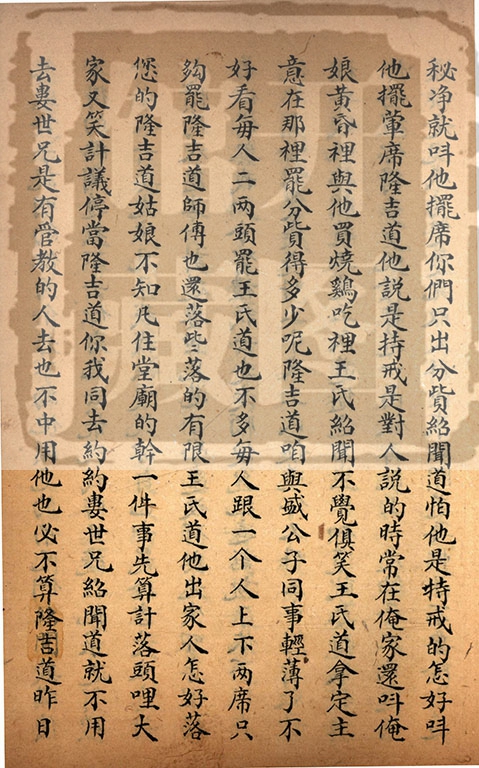 秘净就呌他擺席你們只出分貲紹聞道怕他是持戒的怎好呌
他擺葷席隆吉道他説是持戒是對人説的時常在俺家還呌俺
娘黄昏裡與他買燒鷄吃裡王氏紹聞不覺俱笑王氏道拿定主
意在那裡罷分貲得多少呢隆吉道咱與盛公子同事輕薄了不
好看每人二两頭罷王氏道也不多每人跟一个人上下两席只
彀罷隆吉道師傅也還落些落的有限王氏道他出家人怎好落
您的隆吉道姑娘不知凡住堂廟的幹一件事先算計落頭哩大
家又笑計議停當隆吉道你我同去約約婁世兄紹聞道就不用
去婁世兄是有管教的人去也不中用他也必不算隆吉道昨日